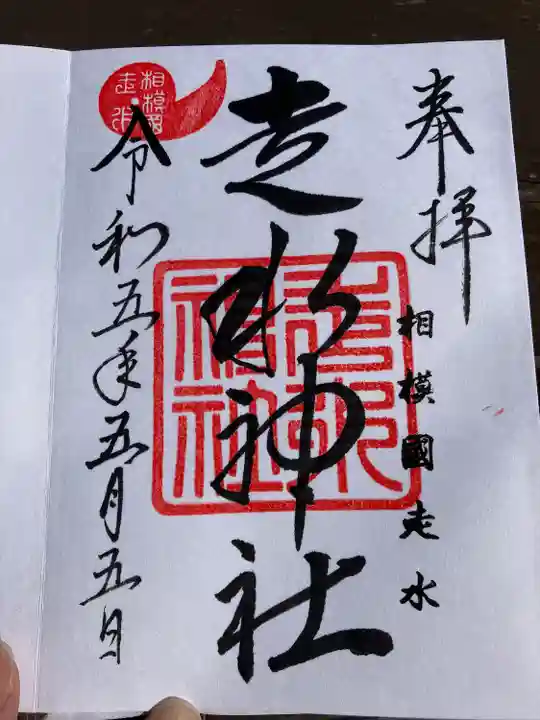 奉拝
相模國走水
走水神社
走水神社
相模國走水
令和五年五月五日